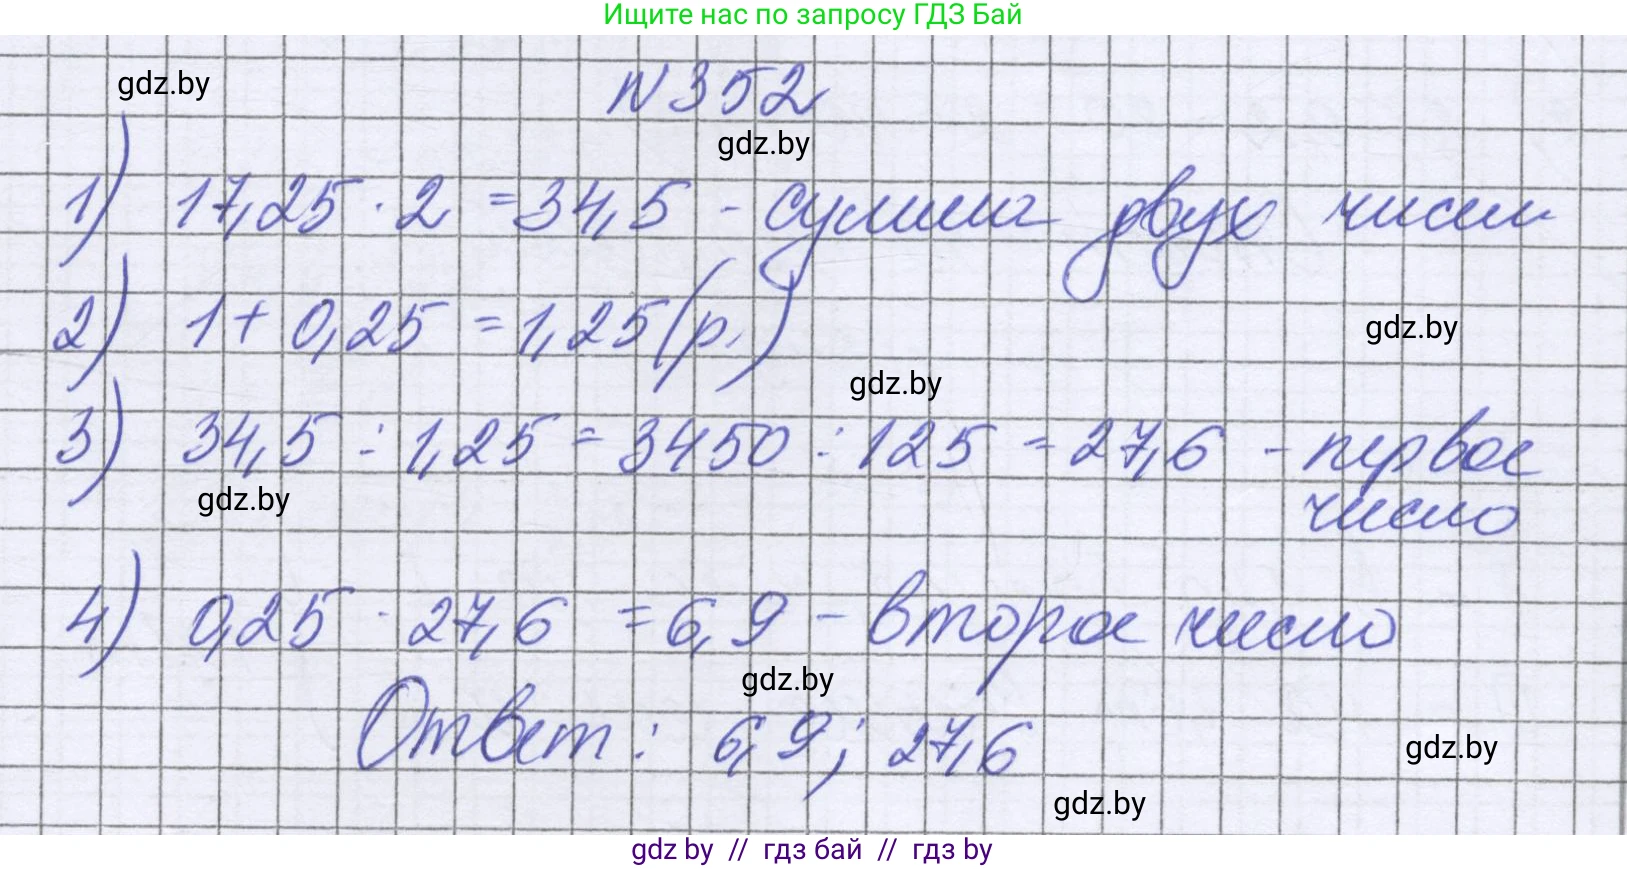 Ищите нас по запросу ГДЗ Бай
gdz.by
N352
gdz.by
1) 17,25 · 2 = 34,5 - сумма двух чисел
2) 1 + 0,25 = 1,25 (р.)
gdz.by
gdz.by
3) 34,5 : 1,25 = 3450 : 125 = 27,6 - первое
число
gdz.by
4) 0,25 · 27,6 = 6,9 - второе число
gdz.by
Ответ: 6,9; 27,6
gdz.by
gdz.by
gdz by // гдз бай // гдз by